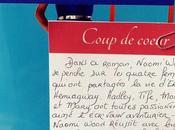 Coup de coeur
Dans ce roman Naomi Wood
se penche sur les quatre femmes
qui ont partagé la vie d'E
Hemingway, Hadley, Fife, M
et Mary ont toutes passionné
aimé l'écrivain aventurier.
Naomi Wood réussit avec